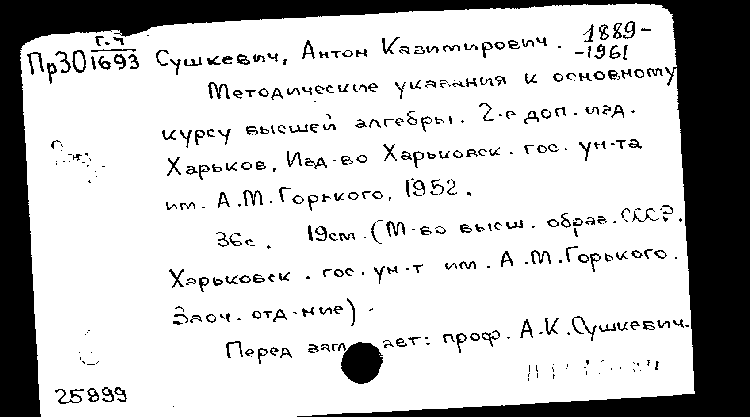 г.ч
Пр30 1693 Сушкевич, Антон Казимирович. 1889-
-1961
Методические указания к основному
курсу высшей алгебры. 2-е доп. изд.
Харьков, Изд-во Харьковск. гос. ун-та
им. А.М.Горького, 1952.
36с. 19см. (М-во высш. образ. СССР.
Харьковск. гос. ун-т им. А.М.Горького.
Заоч. отд-ние).
Перед загл. авт: проф. А.К.Сушкевич.
25999